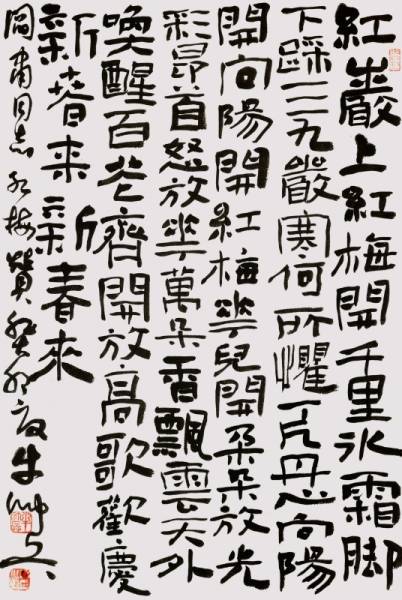 紅巖上紅梅開千里冰霜脚
下踩三九嚴寒何所懼一片丹心向陽
開向陽開紅梅華兒開朵朵放光
彩昂首怒放華萬朵香飄雲天外
喚醒百花齊開放高歌歡慶
新春來新春來
閻肅同志紅梅贊癸卯